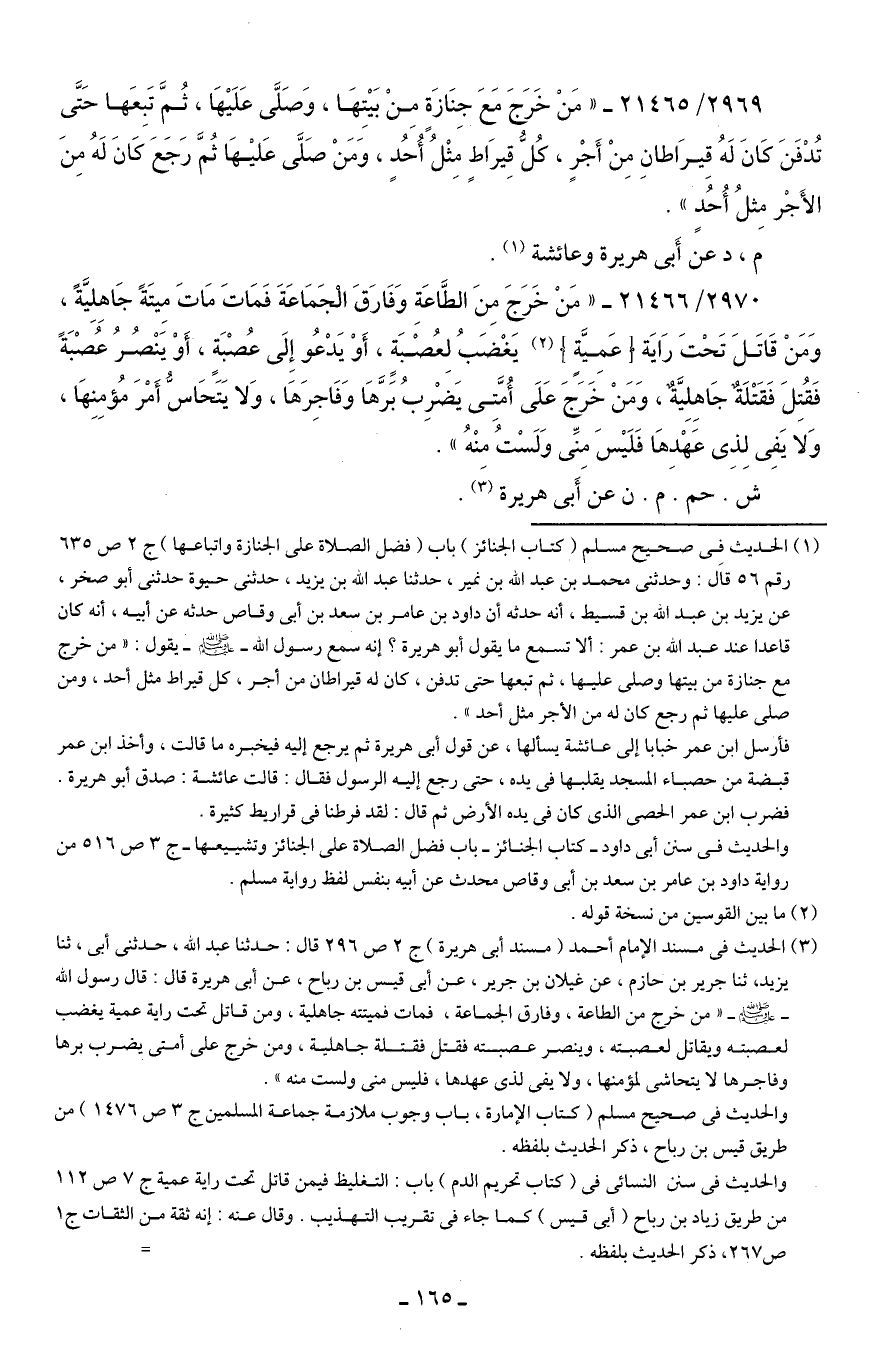 ٢٩٦٩/ ٢١٤٦٥ ـ « مَنْ خَرَجَ مَعَ جِنَازَةٍ مِنْ بَيْتِهَا ، وَصَلَّى عَلَيْهَا ، ثُمَّ تَبِعَهَا حَتَّى
تُدْفَنَ كَانَ لَهُ قِيرَاطانِ مِنْ أَجْرٍ ، كُلُّ قِيرَاطٍ مِثْلُ أُحُدٍ ، وَمَنْ صَلَّى عَلَيْهَا ثُمَّ رَجَعَ كَانَ لَهُ مِنَ
الأَجْرِ مِثلُ أُحُدٍ » .
م ، د عن أَبى هريرة وعائشة (١) .
٢٩٧٠/ ٢١٤٦٦ ـ « مَنْ خَرَجَ مِنَ الطَّاعَةِ وَفَارَقَ الْجَمَاعَةَ فَمَاتَ مَاتَ مِيتَةً جَاهِليَّةً ،
وَمَنْ قَاتَلَ تَحْتَ رَايَةِ { عَمِيَّةٍ } (٢) يَغْضَبُ لِعُصْبَةٍ ، أَوْ يَدْعُو إِلَى عُصْبَةٍ ، أَوْ يَنْصُرُ عُصْبَةً
فَقُتِلَ فَقَتْلَةٌ جَاهِليَّةٌ ، وَمَنْ خَرَجَ عَلَى أُمَّتِى يَضْرِبُ بَرَّهَا وَفَاجِرَهَا ، وَلا يَتَحَاسُّ أَمْرَ مُؤمِنِهَا ،
وَلَا يَفِى لِذِى عَهْدِهَا فَلَيْسَ مِنِّى وَلَسْتُ مِنْهُ » .
ش . حم . م . ن عن أَبى هريرة (٣) .
(١) الحديث فى صحيح مسلم ( كتاب الجنائز ) باب ( فضل الصلاة على الجنازة واتباعها ) ج ٢ ص ٦٣٥
رقم ٥٦ قال : وحدثنى محمد بن عبد الله بن نمير ، حدثنا عبد الله بن يزيد ، حدثنى حيوة حدثنى أبو صخر ،
عن يزيد بن عبد الله بن قسيط ، أنه حدثه أن داود بن عامر بن سعد بن أبى وقاص حدثه عن أبيه ، أنه كان
قاعدا عند عبد الله بن عمر : ألا تسمع ما يقول أبو هريرة ؟ إنه سمع رسول الله ـ ﷺ ـ يقول : « من خرج
مع جنازة من بيتها وصلى عليها ، ثم تبعها حتى تدفن ، كان له قيراطان من أجر ، كل قيراط مثل أحد ، ومن
صلى عليها ثم رجع كان له من الأجر مثل أحد » .
فأرسل ابن عمر خبابا إلى عائشة يسألها ، عن قول أبى هريرة ثم يرجع إليه فيخبره ما قالت ، وأخذ ابن عمر
قبضة من حصباء المسجد يقلبها فى يده ، حتى رجع إليه الرسول فقال : قالت عائشة : صدق أبو هريرة .
فضرب ابن عمر الحصى الذى كان فى يده الأرض ثم قال : لقد فرطنا فى قراريط كثيرة .
والحديث فى سنن أبى داود ـ كتاب الجنائز ـ باب فضل الصلاة على الجنائز وتشييعها ـ ج ٣ ص ٥١٦ من
رواية داود بن عامر بن سعد بن أبى وقاص محدث عن أبيه بنفس لفظ رواية مسلم .
(٢) ما بين القوسين من نسخة قوله .
(٣) الحديث فى مسند الإمام أحمد ( مسند أبى هريرة ) ج ٢ ص ٢٩٦ قال : حدثنا عبد الله ، حدثنى أبى ، ثنا
يزيد، ثنا جرير بن حازم ، عن غيلان بن جرير ، عن أبى قيس بن رباح ، عن أبى هريرة قال : قال رسول الله
ـ ﷺ ـ « من خرج من الطاعة ، وفارق الجماعة ، فمات فميتته جاهلية ، ومن قاتل تحت راية عمية يغضب
لعصبته ويقاتل لعصبته ، وينصر عصبته فقتل فقتلة جاهلية ، ومن خرج على أمتى يضرب برها
وفاجرها لا يتحاشى لمؤمنها ، ولا يفى لذى عهدها ، فليس منى ولست منه » .
والحديث فى صحيح مسلم ( كتاب الإمارة ، باب وجوب ملازمة جماعة المسلمين ج ٣ ص ١٤٧٦ ) من
طريق قيس بن رباح ، ذكر الحديث بلفظه .
والحديث فى سنن النسائى فى ( كتاب تحريم الدم ) باب : التغليظ فيمن قاتل تحت راية عمية ج ٧ ص ١١٢
من طريق زياد بن رباح ( أبى قيس ) كما جاء فى تقريب التهذيب . وقال عنه : إنه ثقة من الثقات ج١
ص٢٦٧، ذكر الحديث بلفظه . =
ـ ١٦٥ ـ